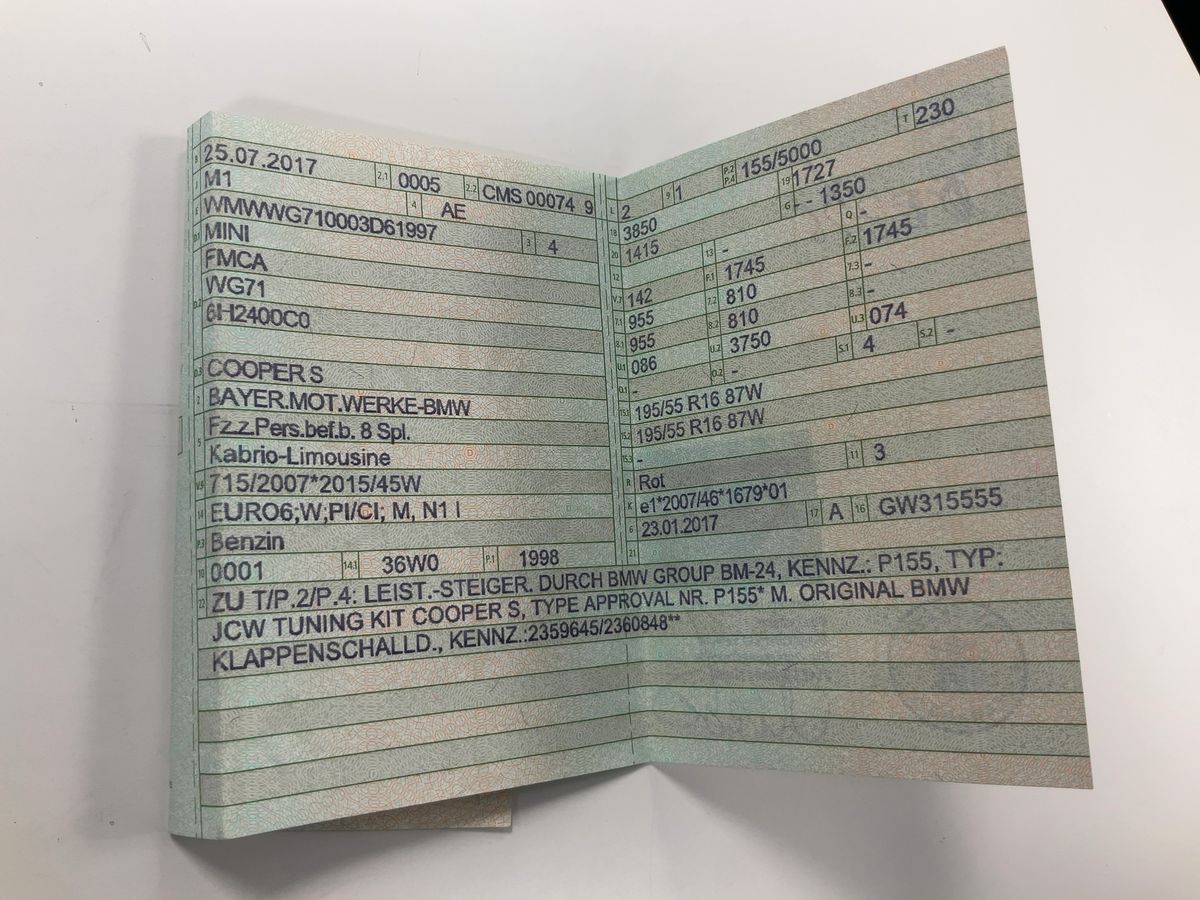 B 25.07.2017 2.1 0005 2.2 CMS 00074 9
J M1 4 AE
E WMWWG710003D61997 3 4
D.1 MINI
FMCA
D.2 WG71
6H2400C0
D.3 COOPER S
2 BAYER.MOT.WERKE-BMW
5 Fz.z.Pers.bef.b. 8 Spl.
Kabrio-Limousine
V.9 715/2007*2015/45W
14 EURO6;W,PI/CI; M, N1 I
P.3 Benzin
10 0001 14.1 36W0 P.1 1998
L 2 9 1 P.2 P.4 155/5000 T 230
18 3850 19 1727
20 1415 G - - 1350
12 13 - Q -
V.7 142 F.1 1745 F.2 1745
7.1 955 7.2 810 7.3 -
8.1 955 8.2 810 8.3 -
U.1 086 U.2 3750 U.3 074
O.1 - O.2 - S.1 4 S.2 -
15.1 195/55 R16 87W
15.2 195/55 R16 87W
15.3 -
R Rot 11 3
K e1*2007/46*1679*01
6 23.01.2017 17 A 16 GW315555
21
22 ZU T/P.2/P.4: LEIST.-STEIGER. DURCH BMW GROUP BM-24, KENNZ.: P155, TYP:
JCW TUNING KIT COOPER S, TYPE APPROVAL NR. P155* M. ORIGINAL BMW
KLAPPENSCHALLD., KENNZ.:2359645/2360848**